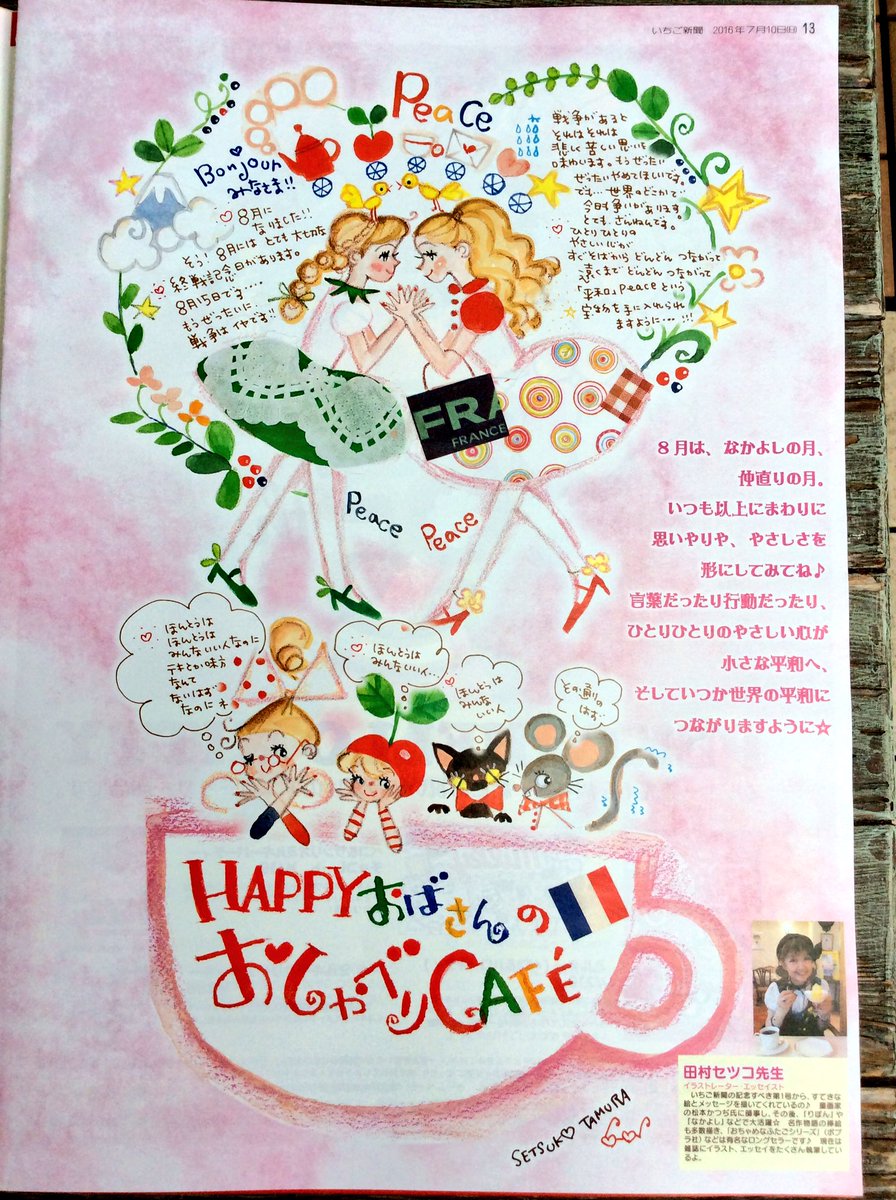 いちご新聞 2016年7月10日(日) 13
Peace
Bonjour
みなさま!!
8月に
なりました!!
そう!8月には とても 大切な
終戦記念日があります。
8月15日です・・・・
もう ぜったいに
戦争は イヤです!!
戦争があると
それは それは
悲しく 苦しい 思いを
味わいます。もう ぜったい
ぜったい やめてほしいです。
でも・・・世界のどこかで
今日も 争いがあります
とても ざんねんです。
ひとりひとりの
やさしい心が
すぐそばから どんどん つながって
遠くまで どんどん つながって
「平和」peace という
宝物を 手に入れられ
ますように・・・!!!
FRA
FRANCE
Peace Peace
8月は、なかよしの月、
仲直りの月。
いつも以上にまわりに
思いやりや、やさしさを
形にしてみてね♪
言葉だったり行動だったり、
ひとりひとりのやさしい心が
小さな平和へ、
そしていつか世界の平和に
つながりますように☆
ほんとうは
ほんとうは
みんないい人なのに
テキとか味方
なんて
ないはず…
なのにネ
ほんとうは
みんないい人…
ほんとうは
みんな
いい人
その通りの
はず…
HAPPYおばさんの
おしゃべりCAFÉ
SETSUKO TAMURA
田村セツコ先生
イラストレーター・エッセイスト
いちご新聞の記念すべき第1号から、すてきな
絵とメッセージを描いてくれているの♪ 童画家
の松本かつぢ氏に師事し、その後、「りぼん」や
「なかよし」などで大活躍☆ 名作物語の挿絵
も多数描き、「おちゃめなふたごシリーズ」(ポプ
ラ社)などは有名なロングセラーです♪ 現在は
雑誌にイラスト、エッセイをたくさん執筆してい
るよ。